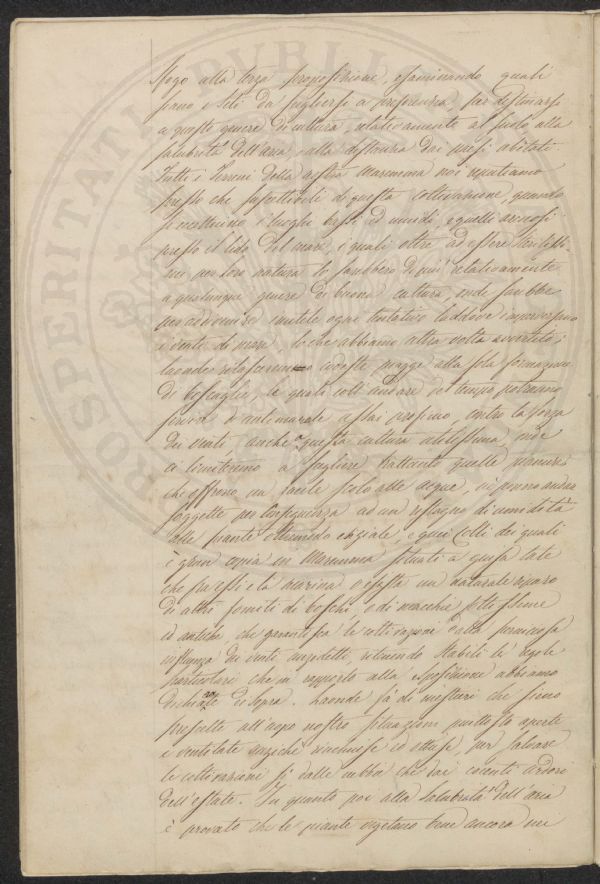 sfogo alla terza proposizione, esaminando quali
siano i siti da scegliersi a preferenza per destinarsi
a questo genere di cultura, relativamente al suolo, alla
salubrità dell'aria, alla distanza dai paesi abitati.
Tutti i terreni della nostra Maremma noi reputiamo
presso che suscettibili di questa coltivazione, quando
si eccettuino i luoghi bassi ed umidi, e quelli arenosi
presso il lido del mare, i quali oltre ad essere sterilissi-
mi per loro natura lo sarebbero di più relativamente
a qualunque genere di buona cultura, onde sarebbe
per addivenire inutile ogni tentativo laddove imperversano
i venti di mare, lo che abbiamo altra volta avvertito;
laonde rilasceremo codeste piagge alla sola formazione
di boscaglie, le quali coll'andare del tempo potranno
servire d'antemurale assai proficuo contro la forza
dei venti anche a questa cultura utilissima, noi
ci limiteremo a scegliere trattanto quelle pianure
che offrono un facile scolo alle acque, nè ponno andar
soggette per conseguenza ad un ristagno di umidità
alle piante oltremodo esiziale, e quei colli dei quali
è gran copia in Maremma situati a guisa tale
che fra essi e la marina esista un naturale riparo
di altri fomiti di boschi, e di macchie foltissime
ed antiche, che garantisca le coltivazioni dalla perniciosa
influenza dei venti anzidetti, ritenendo stabili le regole
particolari che in rapporto alla esposizione abbiamo
dichiarate di sopra. Laonde fa di mestieri che sieno
prescelte all'uopo nostro situazioni piuttosto aperte
e ventilate anzichè rinchiuse ed ottuse, per salvare
le coltivazioni sì dalle nebbie che dai cocenti ardori
dell'estate. In quanto poi alla salubrità dell'aria
è provato che le piante vegetano bene ancora nei